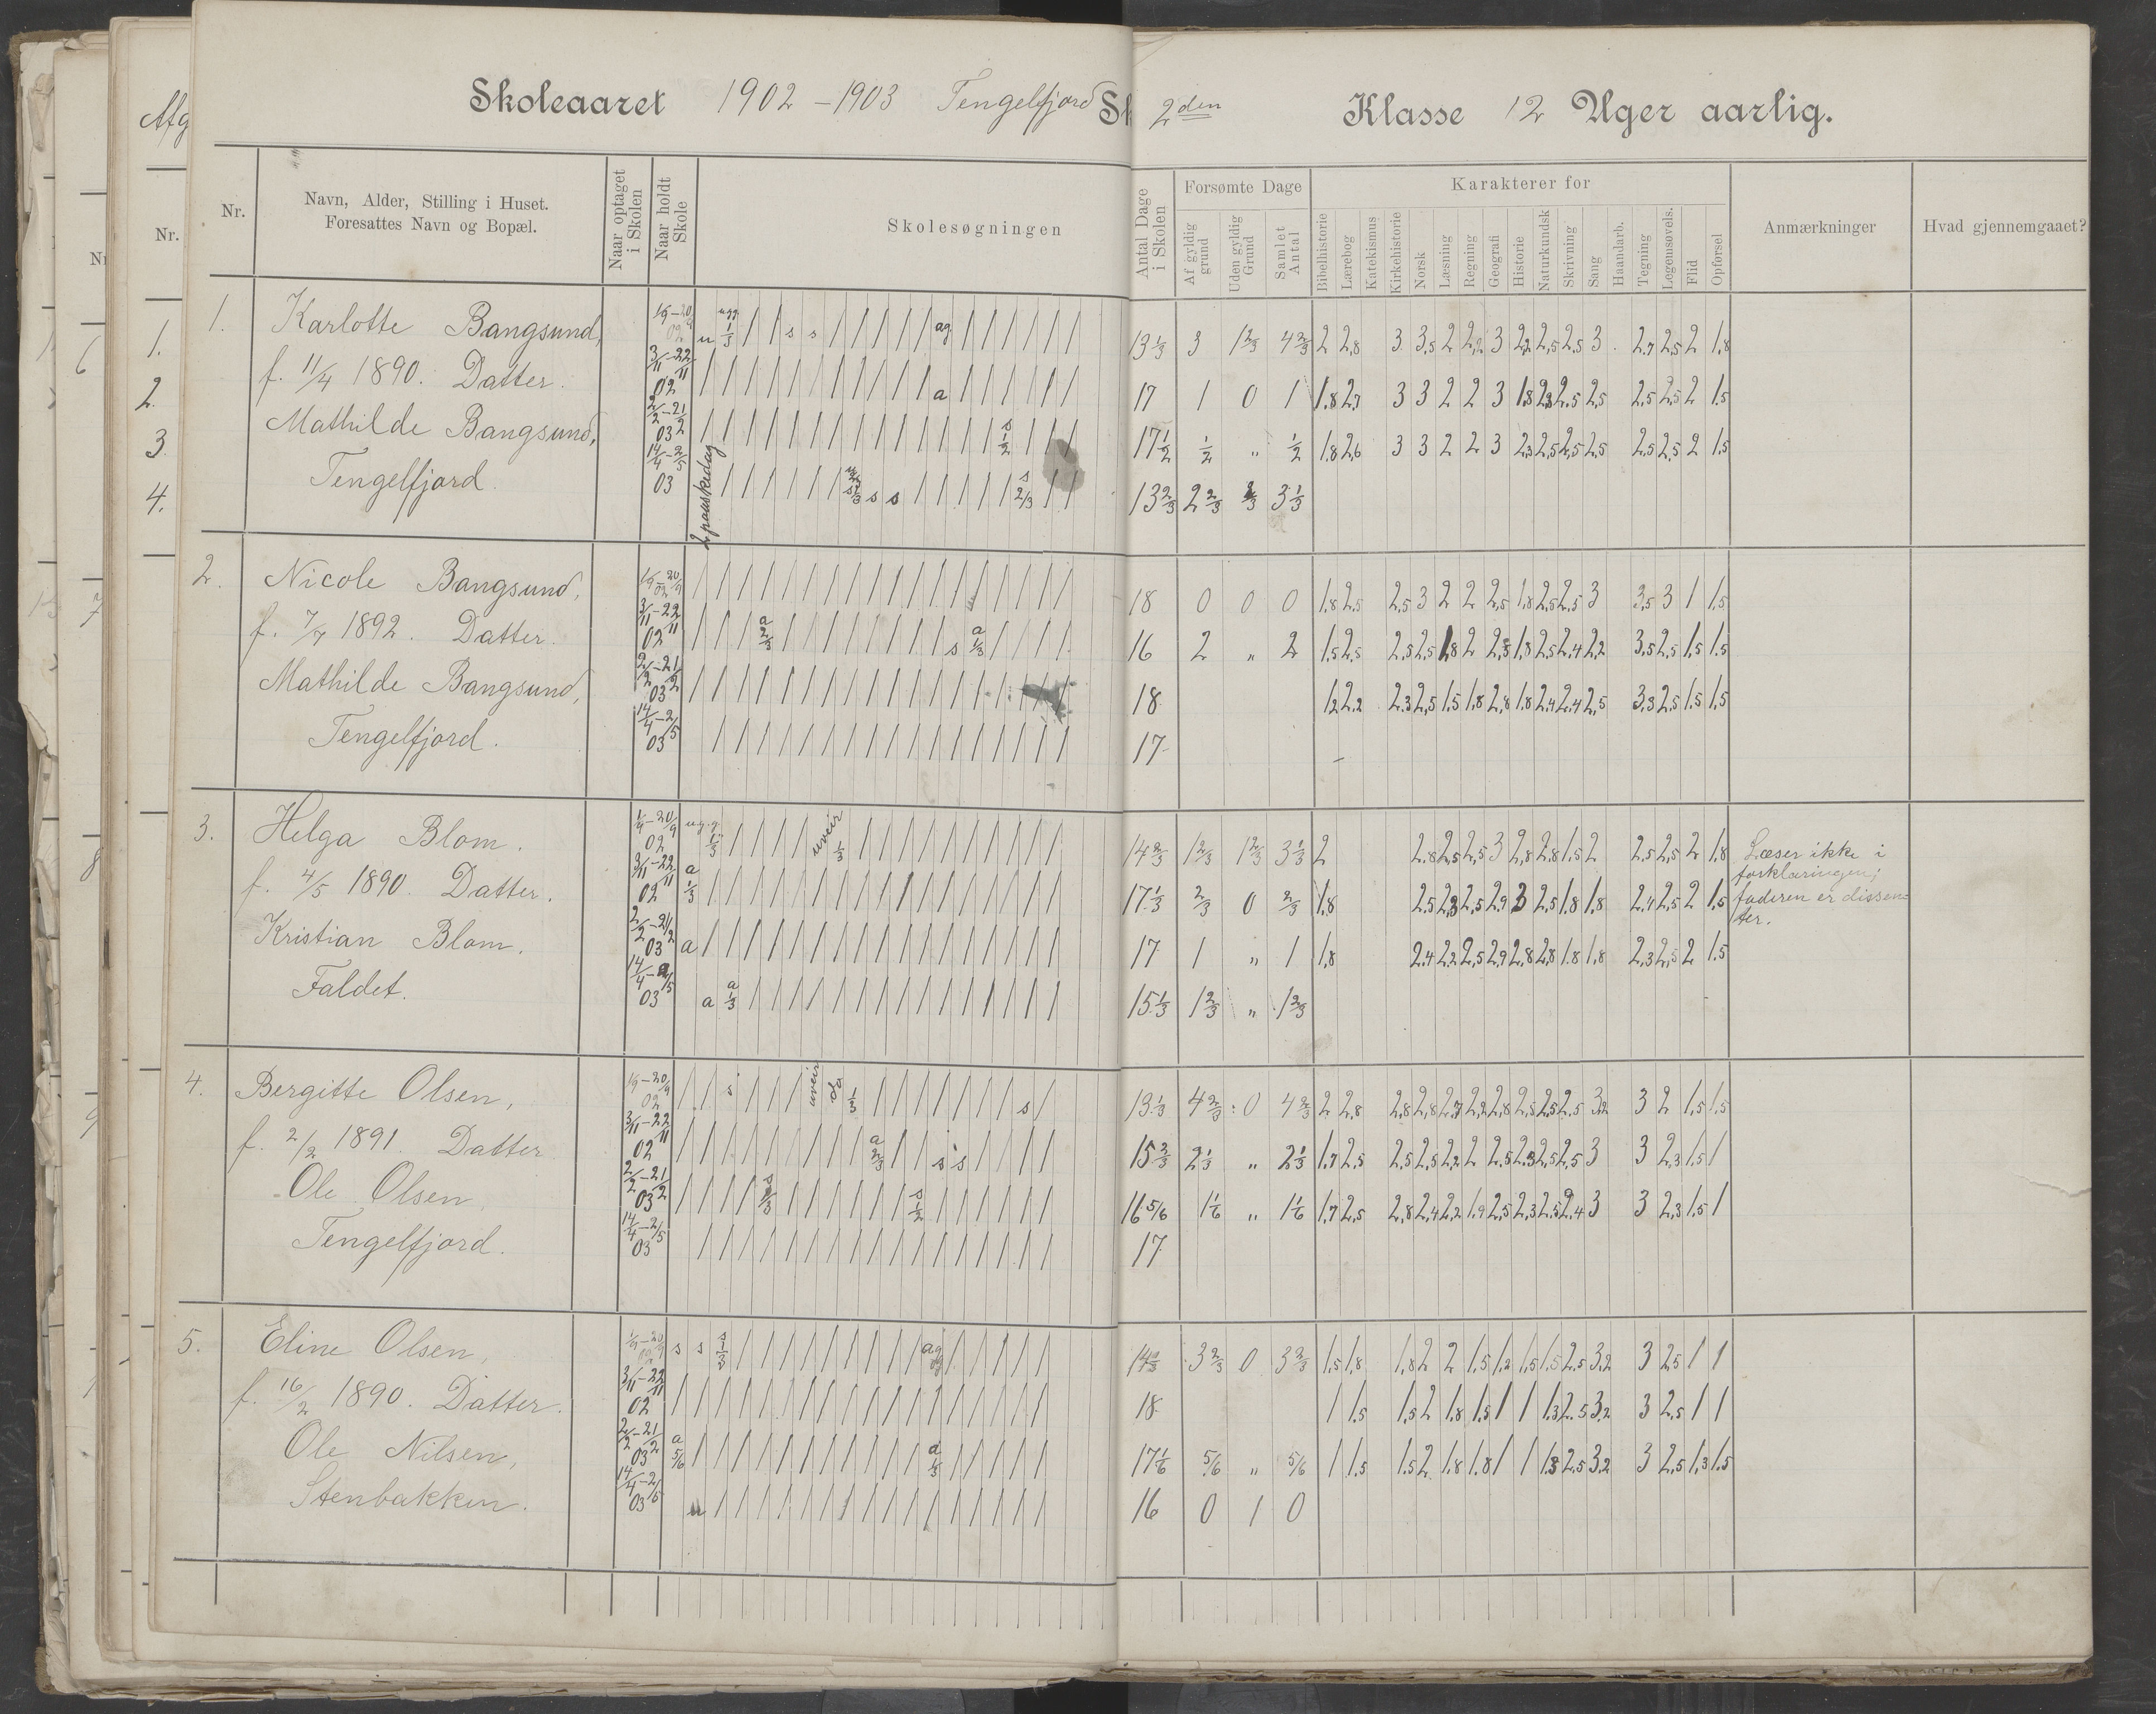 Skoleaaret 1902-1903 Tengelfjord Sk 2den Klasse 12 Uger aarlig.
Nr.
Navn, Alder, Stilling i Huset.
Foresattes Navn og Bopæl.
Naar optaget i Skolen
Naar holdt Skole
Skolesøgningen
Antal Dage i Skolen
Forsømte Dage
Af gyldig grund
Uden gyldig Grund
Samlet Antal
Karakterer for
Bibelhistorie
Lærebog
Katekismus
Kirkehistorie
Norsk
Læsning
Regning
Geografi
Historie
Naturkundsk
Skrivning
Sang
Haandarb.
Tegning
Legemsøvels.
Flid
Opførsel
Anmærkninger
Hvad gjennemgaaet?
1. Karlotte Bangsund, 13 1/3 3 1 2/3 4 2/3 2 2,8 3 3,5 2 2,2 3 2,2 2,5 2,5 3 2.7 2,5 2 1,8
f. 11/4 1890. Datter. 3/11-22/11 02 a 17 1 0 1 1.8 2,7 3 3 2 2 3 1.8 2,3 2.5 2,5 2,5 2,5 2 1.5
Mathilde Bangsund, 2/2-21/2 03 s 1/2 17 1/2 1/2 " 1/2 1.8 2,6 3 3 2 2 3 2,3 2,5 2,5 2,5 2,5 2,5 2 1.5
Tengelfjord. 14/4-2/5 03 2 paaskedag s s s 2/3 13 2/3 2 2/3 2/3 3 1/3
2. Nicole Bangsund, 1/9-20/9 02 18 0 0 0 1.8 2,5 2,5 3 2 2 2,5 1.8 2,5 2,5 3 3,5 3 1 1,5
f. 7/7 1892. Datter. 3/11-22/11 02 a 2/3 s a 1/3 16 2 " 2 1,5 2,5 2,5 2,5 1,8 2 2,3 1,8 2,5 2,4 2,2 3,5 2,5 1,5 1.5
Mathilde Bangsund, 2/2-21/2 03 18 1,2 2,2 2.3 2,5 1.5 1.8 2,8 1.8 2,4 2,4 2,5 3,3 2,5 1.5 1.5
Tengelfjord. 14/4-2/5 03 17
3. Helga Blom. 1/9-20/9 02 u.g.g. 1/3 uveir 1/3 14 2/3 1 2/3 1 2/3 3 1/3 2 2.8 2,5 2,5 3 2,8 2,8 1.5 2 2,5 2,5 2 1,8 Læser ikke i
forklaringen;
f. 4/5 1890. Datter. 3/11-22/11 02 a 1/3 17 1/3 2/3 0 2/3 1,8 2,5 2,3 2,5 2.9 3 2,5 1.8 1,8 2,4 2,5 2 1,5 faderen er dissen-
ter.
Kristian Blom. 2/2-21/2 03 a 17 1 " 1 1,8 2.4 2,2 2,5 2,9 2,8 2,8 1.8 1,8 2,3 2,5 2 1.5
Faldet. 14/4-2/5 03 a a 1/3 15 1/3 1 2/3 " 1 2/3
4. Bergitte Olsen, 1/9-20/9 02 s uveir do 1/3 s 13 1/3 4 2/3 0 4 2/3 2 2,8 2,8 2,8 2,7 2,2 2,8 2,5 2,5 2,5 3,2 3 2 1,5 1.5
f. 2/2 1891. Datter 3/11-22/11 02 a 2/3 s s 15 2/3 2 1/3 " 2 1/3 1,7 2,5 2,5 2,5 2,2 2 2,5 2.3 2,5 2,5 3 3 2,3 1,5 1
Ole Olsen, 2/2-21/2 03 s 2/3 s 1/2 16 5/6 1 1/6 " 1 1/6 1,7 2,5 2,8 2,4 2,2 1,9 2,5 2,3 2,5 2,4 3 3 2,3 1,5 1
Tengelfjord. 14/4-2/5 03 17
5. Eline Olsen, s s s 1/3 14 1/3 3 2/3 0 3 2/3 1,5 1,8 1,8 2 2 1,5 1,2 1,5 1,5 2,5 3,2 3 2,5 1 1
f. 16/2 1890. Datter. 3/11-22/11 02 18 1 1.5 1,5 2 1.8 1.5 1 1 1.3 2.5 3,2 3 2,5 1 1
Ole Nilsen, 2/2-21/2 03 a 5/6 a 1/3 17 1/6 5/6 " 5/6 1 1.5 1.5 2 1.8 1.8 1 1 1.3 2,5 3,2 3 2,5 1,3 1.5
Stenbakken. 14/4-2/5 03 u 16 0 1 0